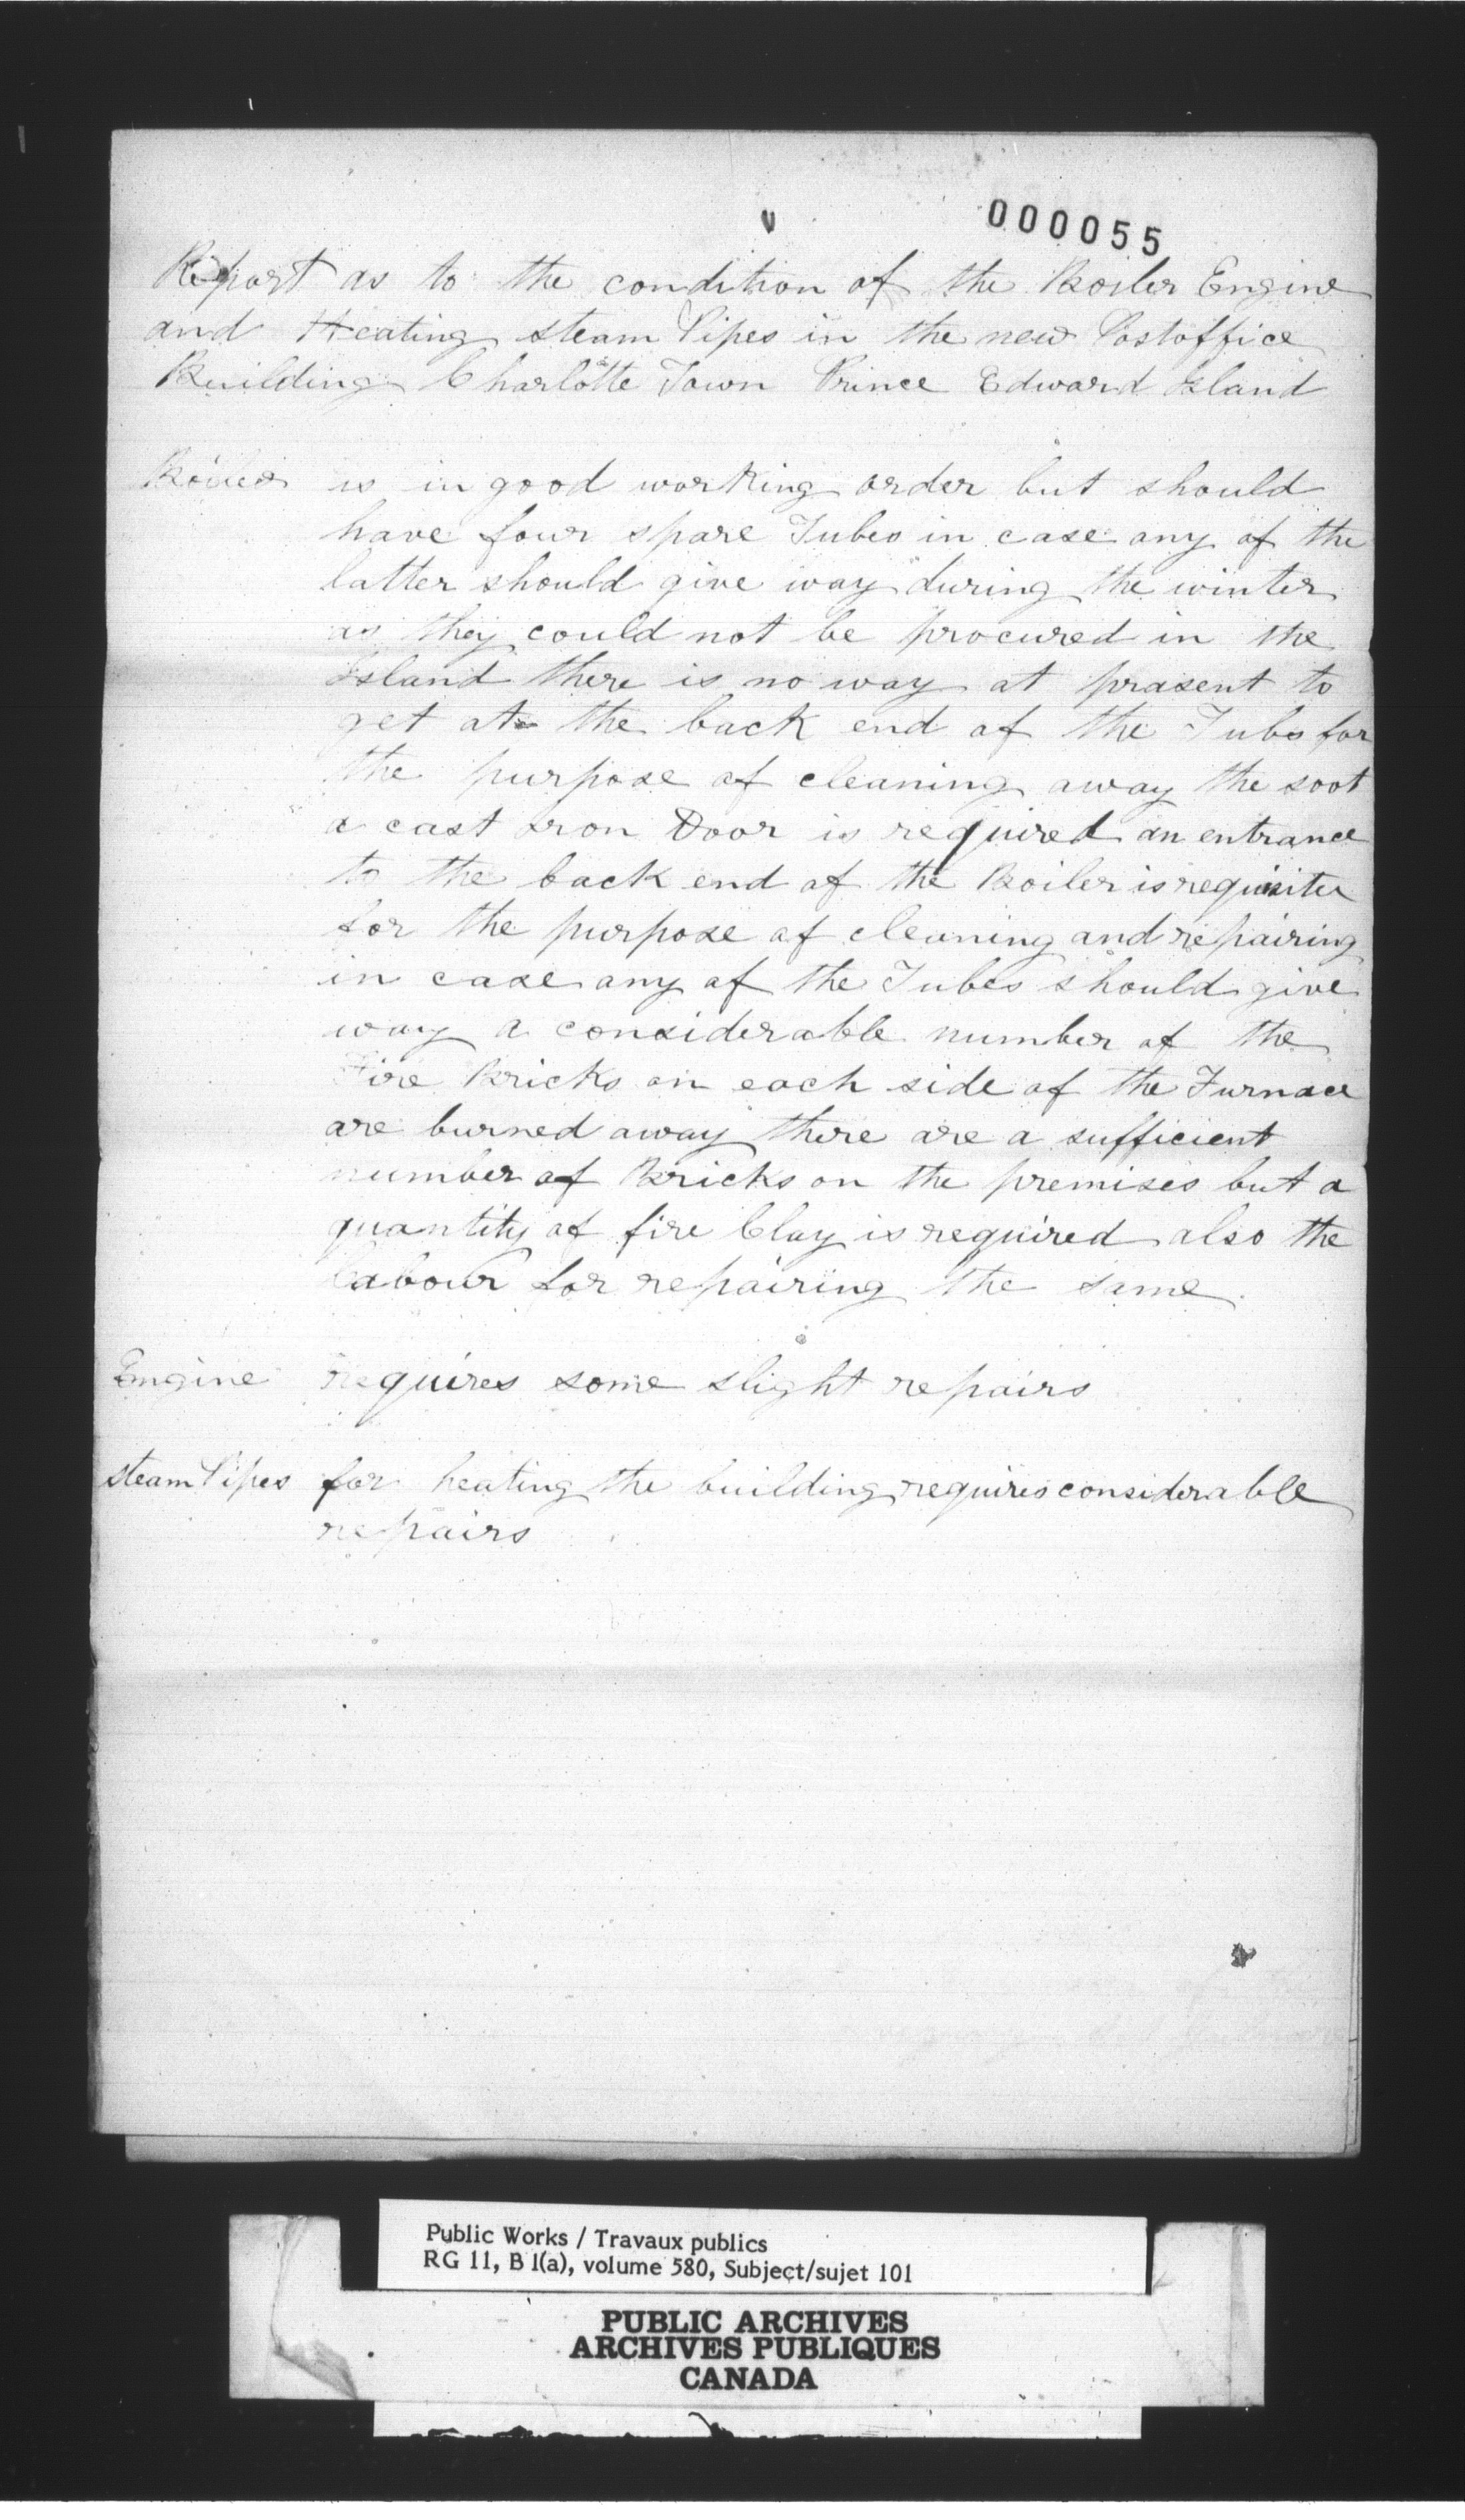 000055
Report as to the condition of the Boiler Engine
and Heating steam Pipes in the new Postoffice
Building Charlotte Town Prince Edward Island
Boiler is in good working order but should
have four spare Tubes in case any of the
latter should give way during the winter
as they could not be procured in the
Island there is no way at prasent to
get at the back end of the Tubs for
the purpose of cleaning away the soot
a cast Iron Door is required an entrance
to the back end of the Boiler is requisite
for the purpose of cleaning and repairing
in case any of the Tubes should give
way a considerable number of the
Fire Bricks on each side of the Furnace
are burned away there are a sufficient
number of Bricks on the premises but a
quantity of fire Clay is required also the
labour for repairing the same.
Engine requires some slight repairs
steam Pipes for heating the building requires considerable
repairs
Public Works / Travaux publics
RG 11, B 1(a), volume 580, Subject/sujet 101
PUBLIC ARCHIVES
ARCHIVES PUBLIQUES
CANADA